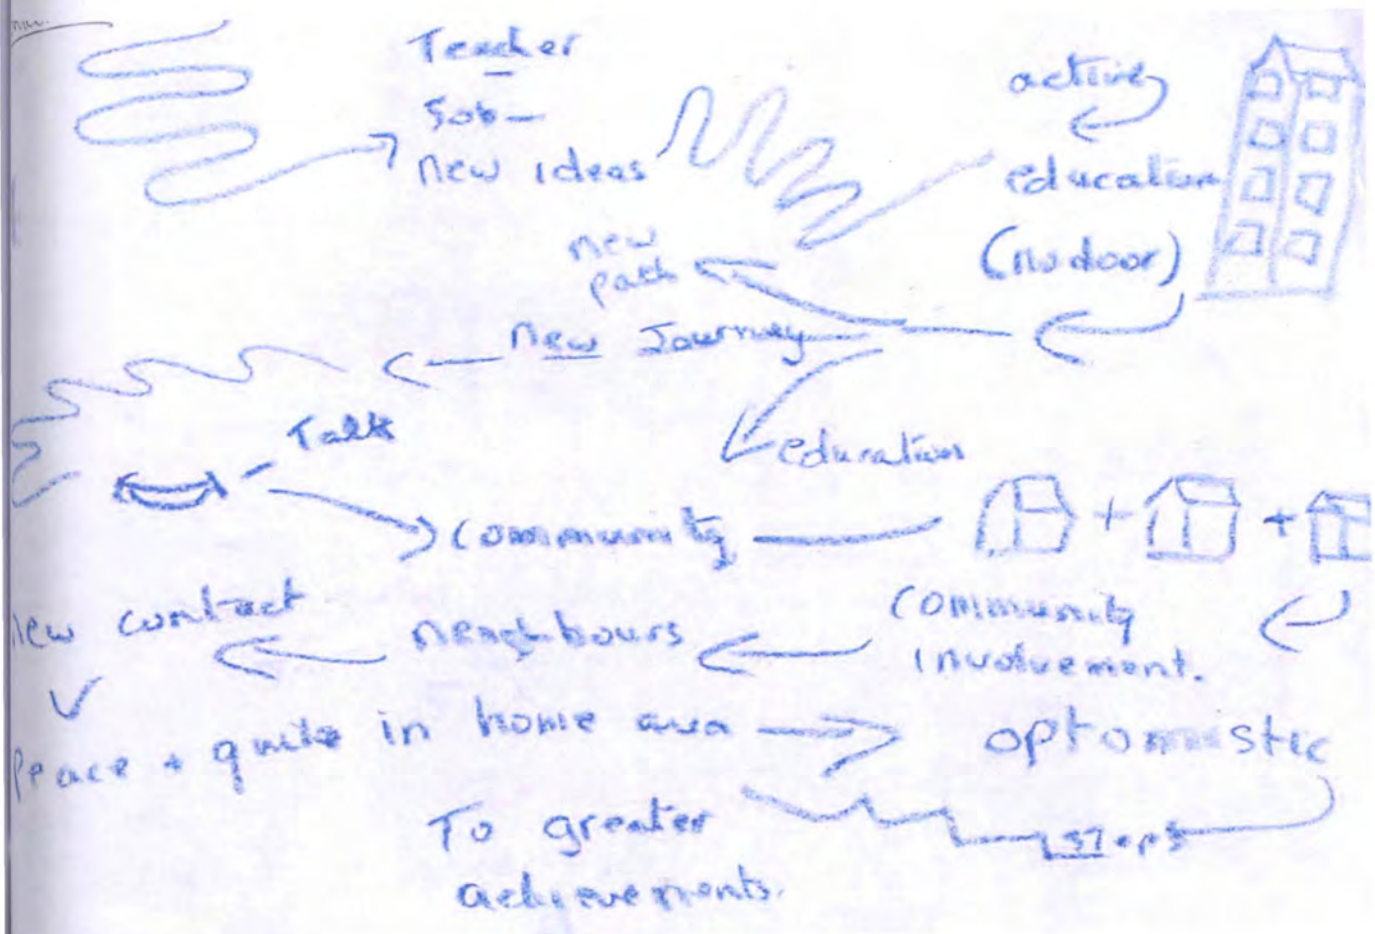 Teacher
Job -
new ideas
active
education
(no door)
new
path
new Journey
Talk
education
community
+ +
community
involvement.
neighbours
new contact
Peace + quite in home area
optommistic
steps
To greater
achievements.